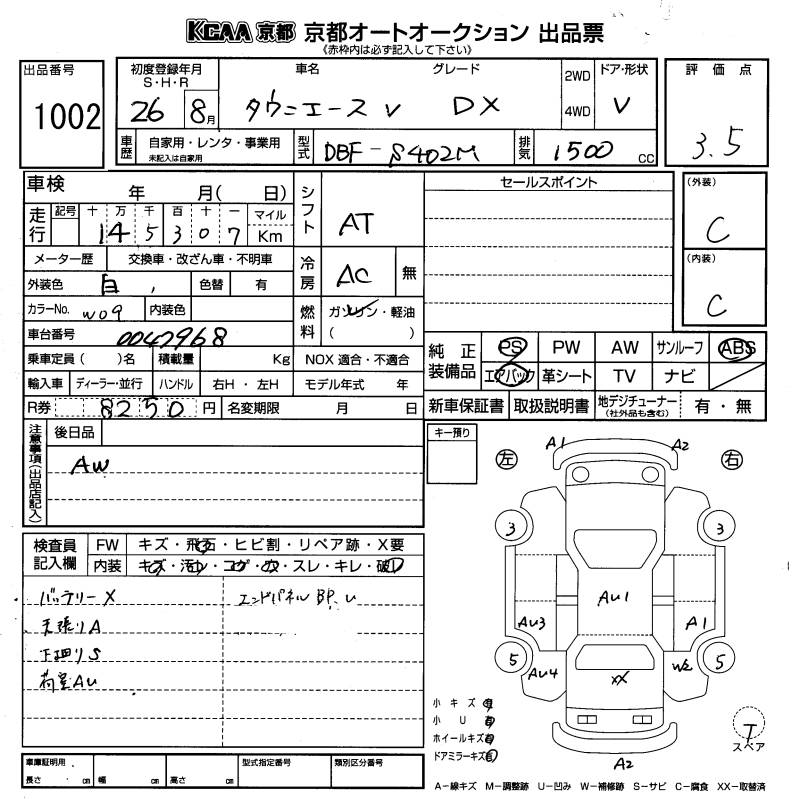 KCAA 京都 京都オートオークション 出品票
《赤枠内は必ず記入して下さい》
出品番号 1002
初度登録年月 S・H・R 26 8月
車名 グレード タウンエースV DX
2WD 4WD
ドア・形状 V
評価点 3.5
車歴 自家用・レンタ・事業用 未記入は自家用
型式 DBF-S402M
排気 1500 CC
車検 年 月( 日)
走行 記号 十 万 千 百 十 一 マイル Km 145307
メーター歴 交換車・改ざん車・不明車
外装色 白 , 色替 有
カラーNo. W09 内装色
車台番号 0042968
乗車定員( )名 積載量 Kg NOX 適合・不適合
輸入車 ディーラー・並行 ハンドル 右H・左H モデル年式 年
R券 8250 円 名変期限 月 日
シフト AT
冷房 AC 無
燃料 ガソリン・軽油 ( )
セールスポイント
(外装) C
(内装) C
純正装備品 PS PW AW サンルーフ ABS
エアバック 革シート TV ナビ
新車保証書 取扱説明書 地デジチューナー (社外品も含む) 有・無
注意事項(出品店記入) 後日品
AW
キー預り
左 右
A1 A2
3 3
AU1
AU3 A1
5 5
AU4 W2
XX
A2
検査員記入欄 FW キズ・飛石・ヒビ割・リペア跡・X要
内装 キズ・汚レ・コゲ・穴・スレ・キレ・破レ
バッテリーX エンドパネルBP.U
天張りA
下廻りS
荷室AU
小キズ有
小U有
ホイールキズ有
ドアミラーキズ有
T
スペア
車庫証明用 長さ cm 幅 cm 高さ cm
型式指定番号 類別区分番号
A−線キズ M−調整跡 U−凹み W−補修跡 S−サビ C−腐食 XX−取替済